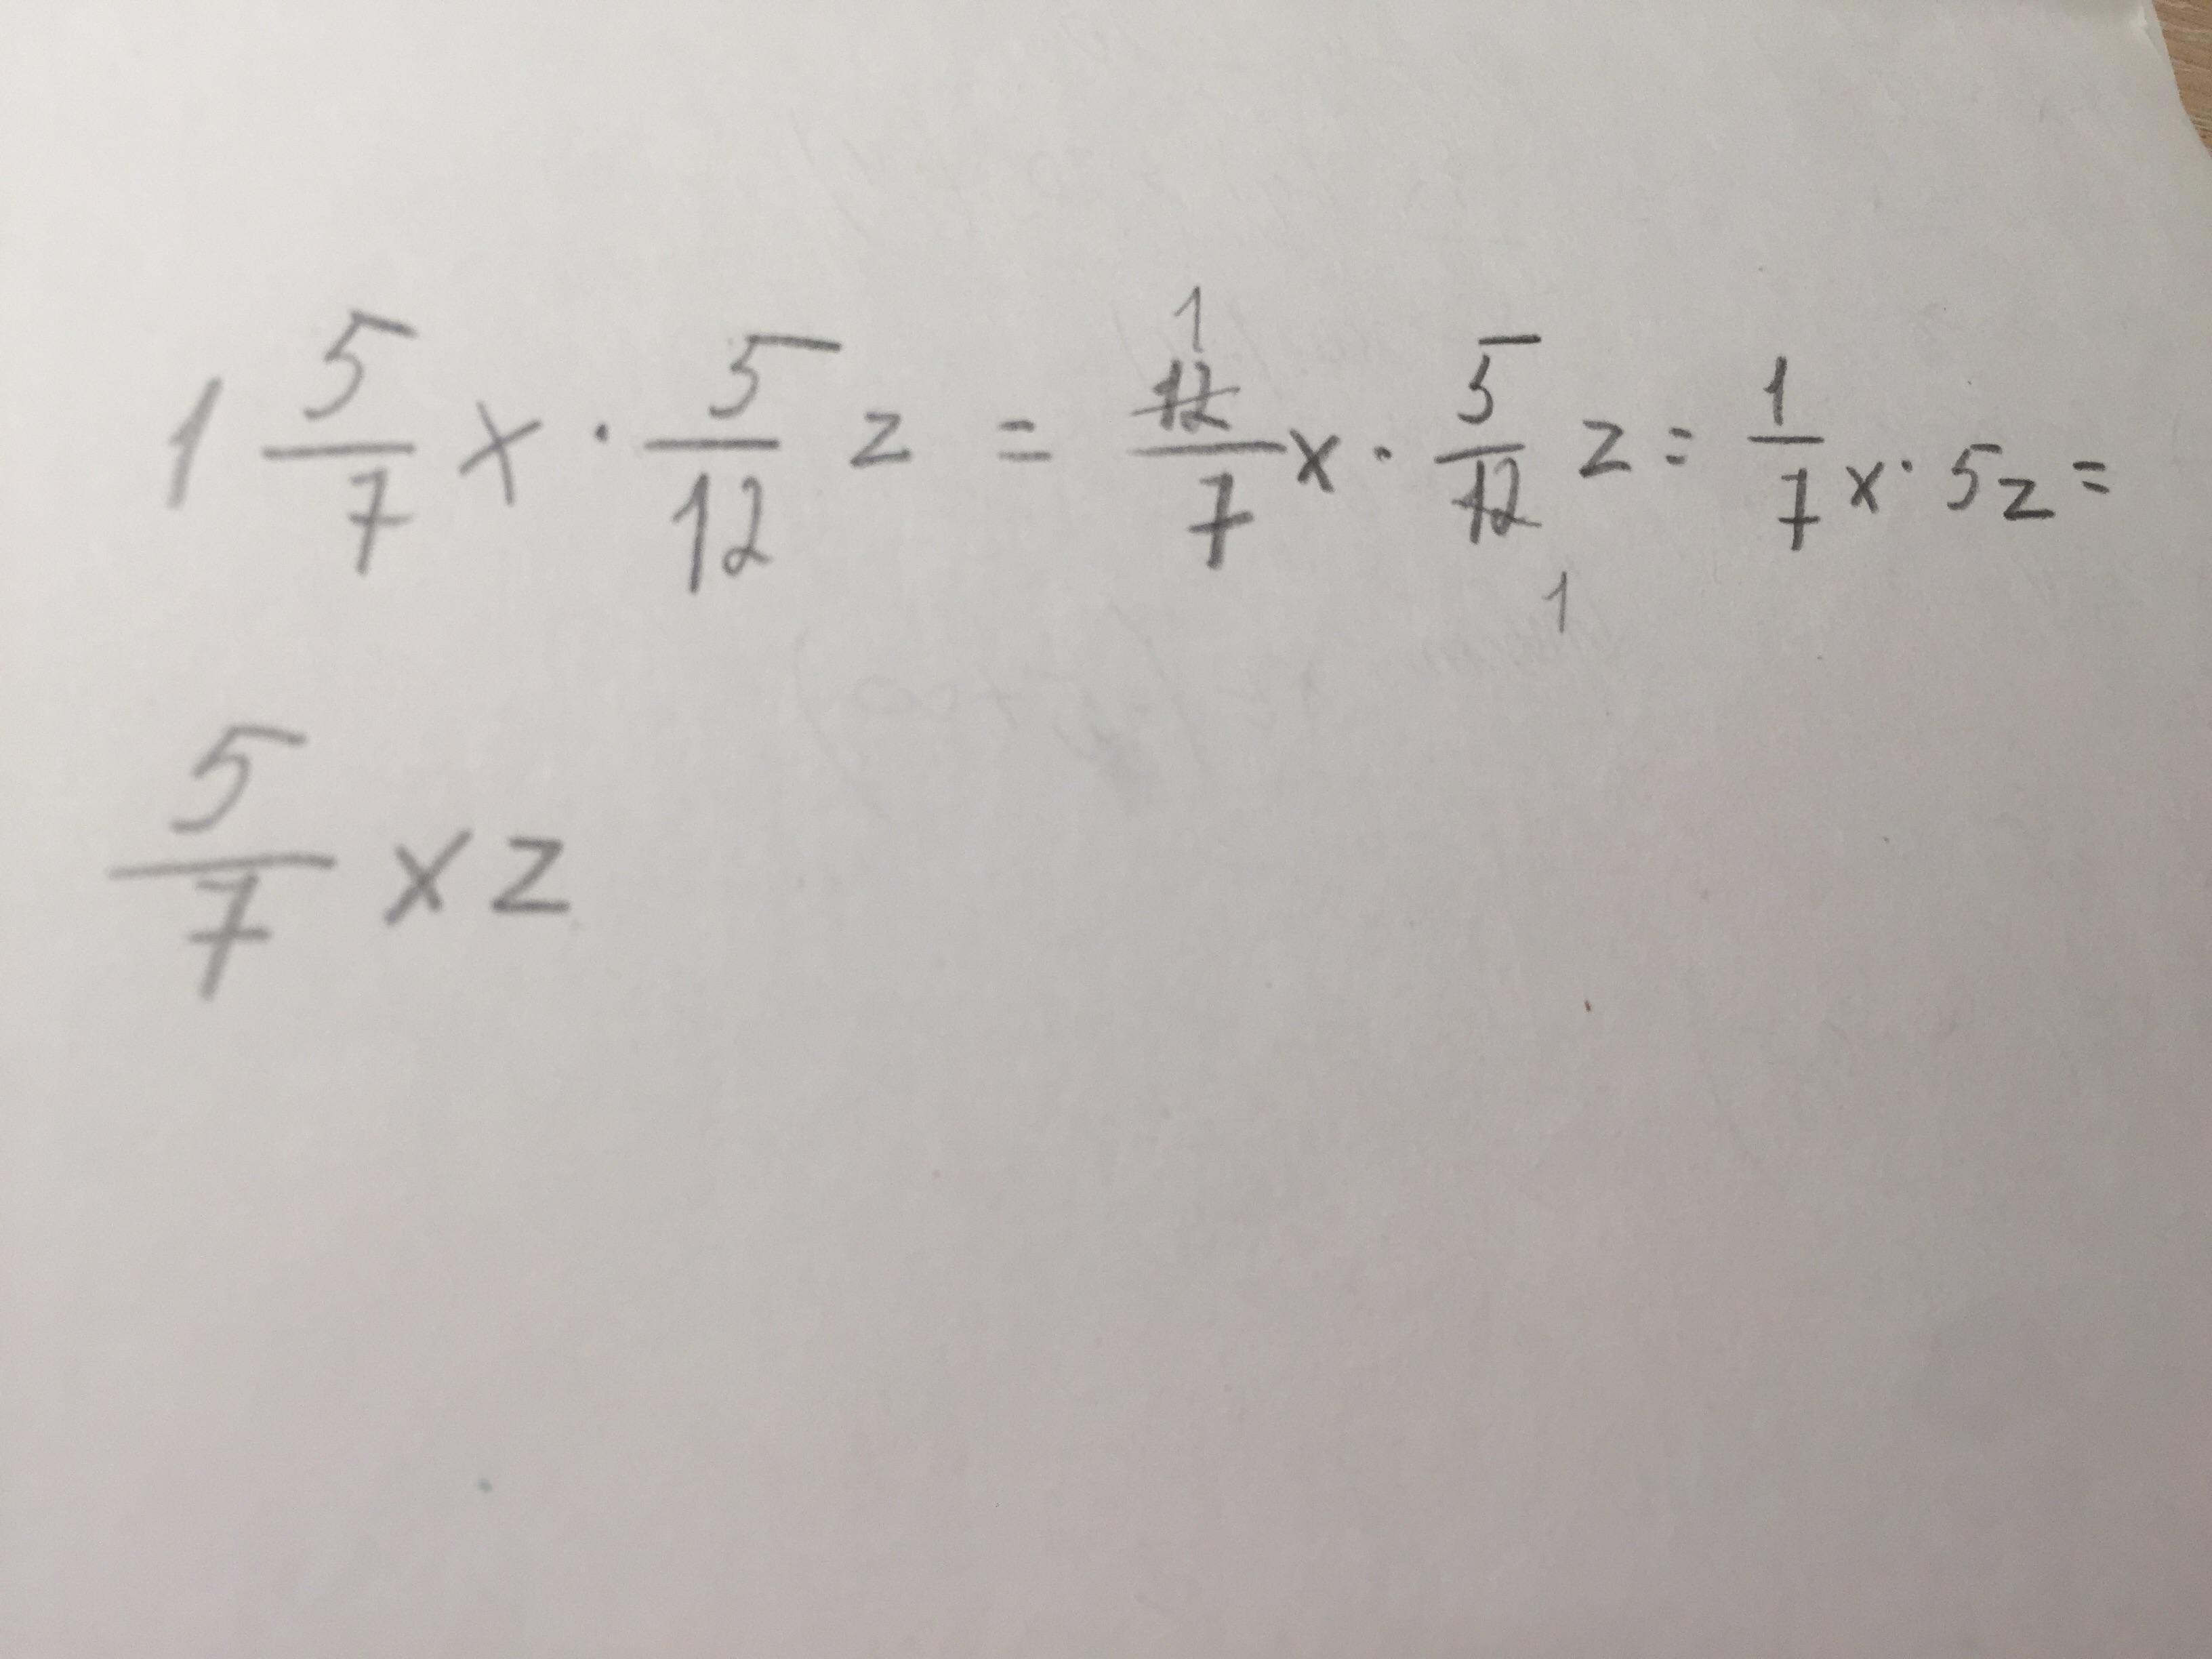 1 5/7 x · 5/12 z = 12/7 x · 5/12 z = 1/7 x · 5z =
5/7 xz